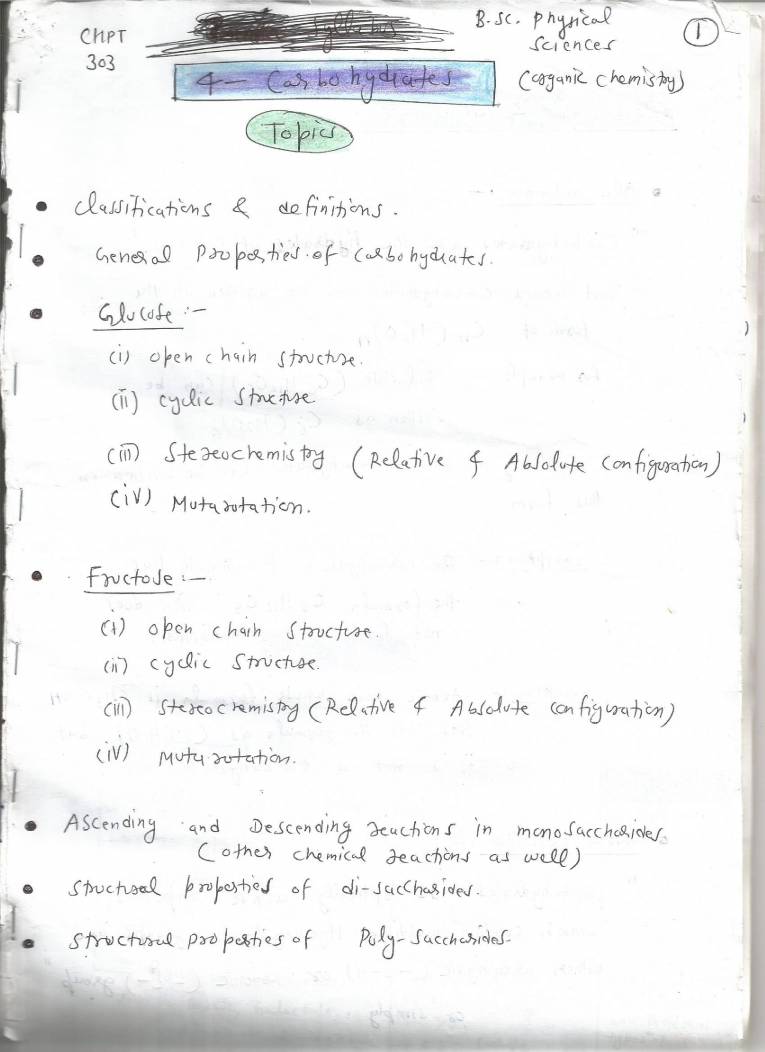 CHPT
303
Syllabus
B.Sc. Physical
Sciences
(organic chemistry)
1
4 - Carbohydrates
Topics
• Classifications & definitions.
• General Properties of Carbohydrates.
• Glucose :-
(i) open chain structure.
(ii) cyclic structure
(iii) Stereochemistry (Relative & Absolute configuration)
(iv) Mutarotation.
• Fructose :-
(i) open chain structure.
(ii) cyclic structure.
(iii) stereochemistry (Relative & Absolute configuration)
(iv) Mutarotation.
• Ascending and Descending reactions in monosaccharides.
(other chemical reactions as well)
• structural properties of di-saccharides.
• structural properties of Poly-saccharides.